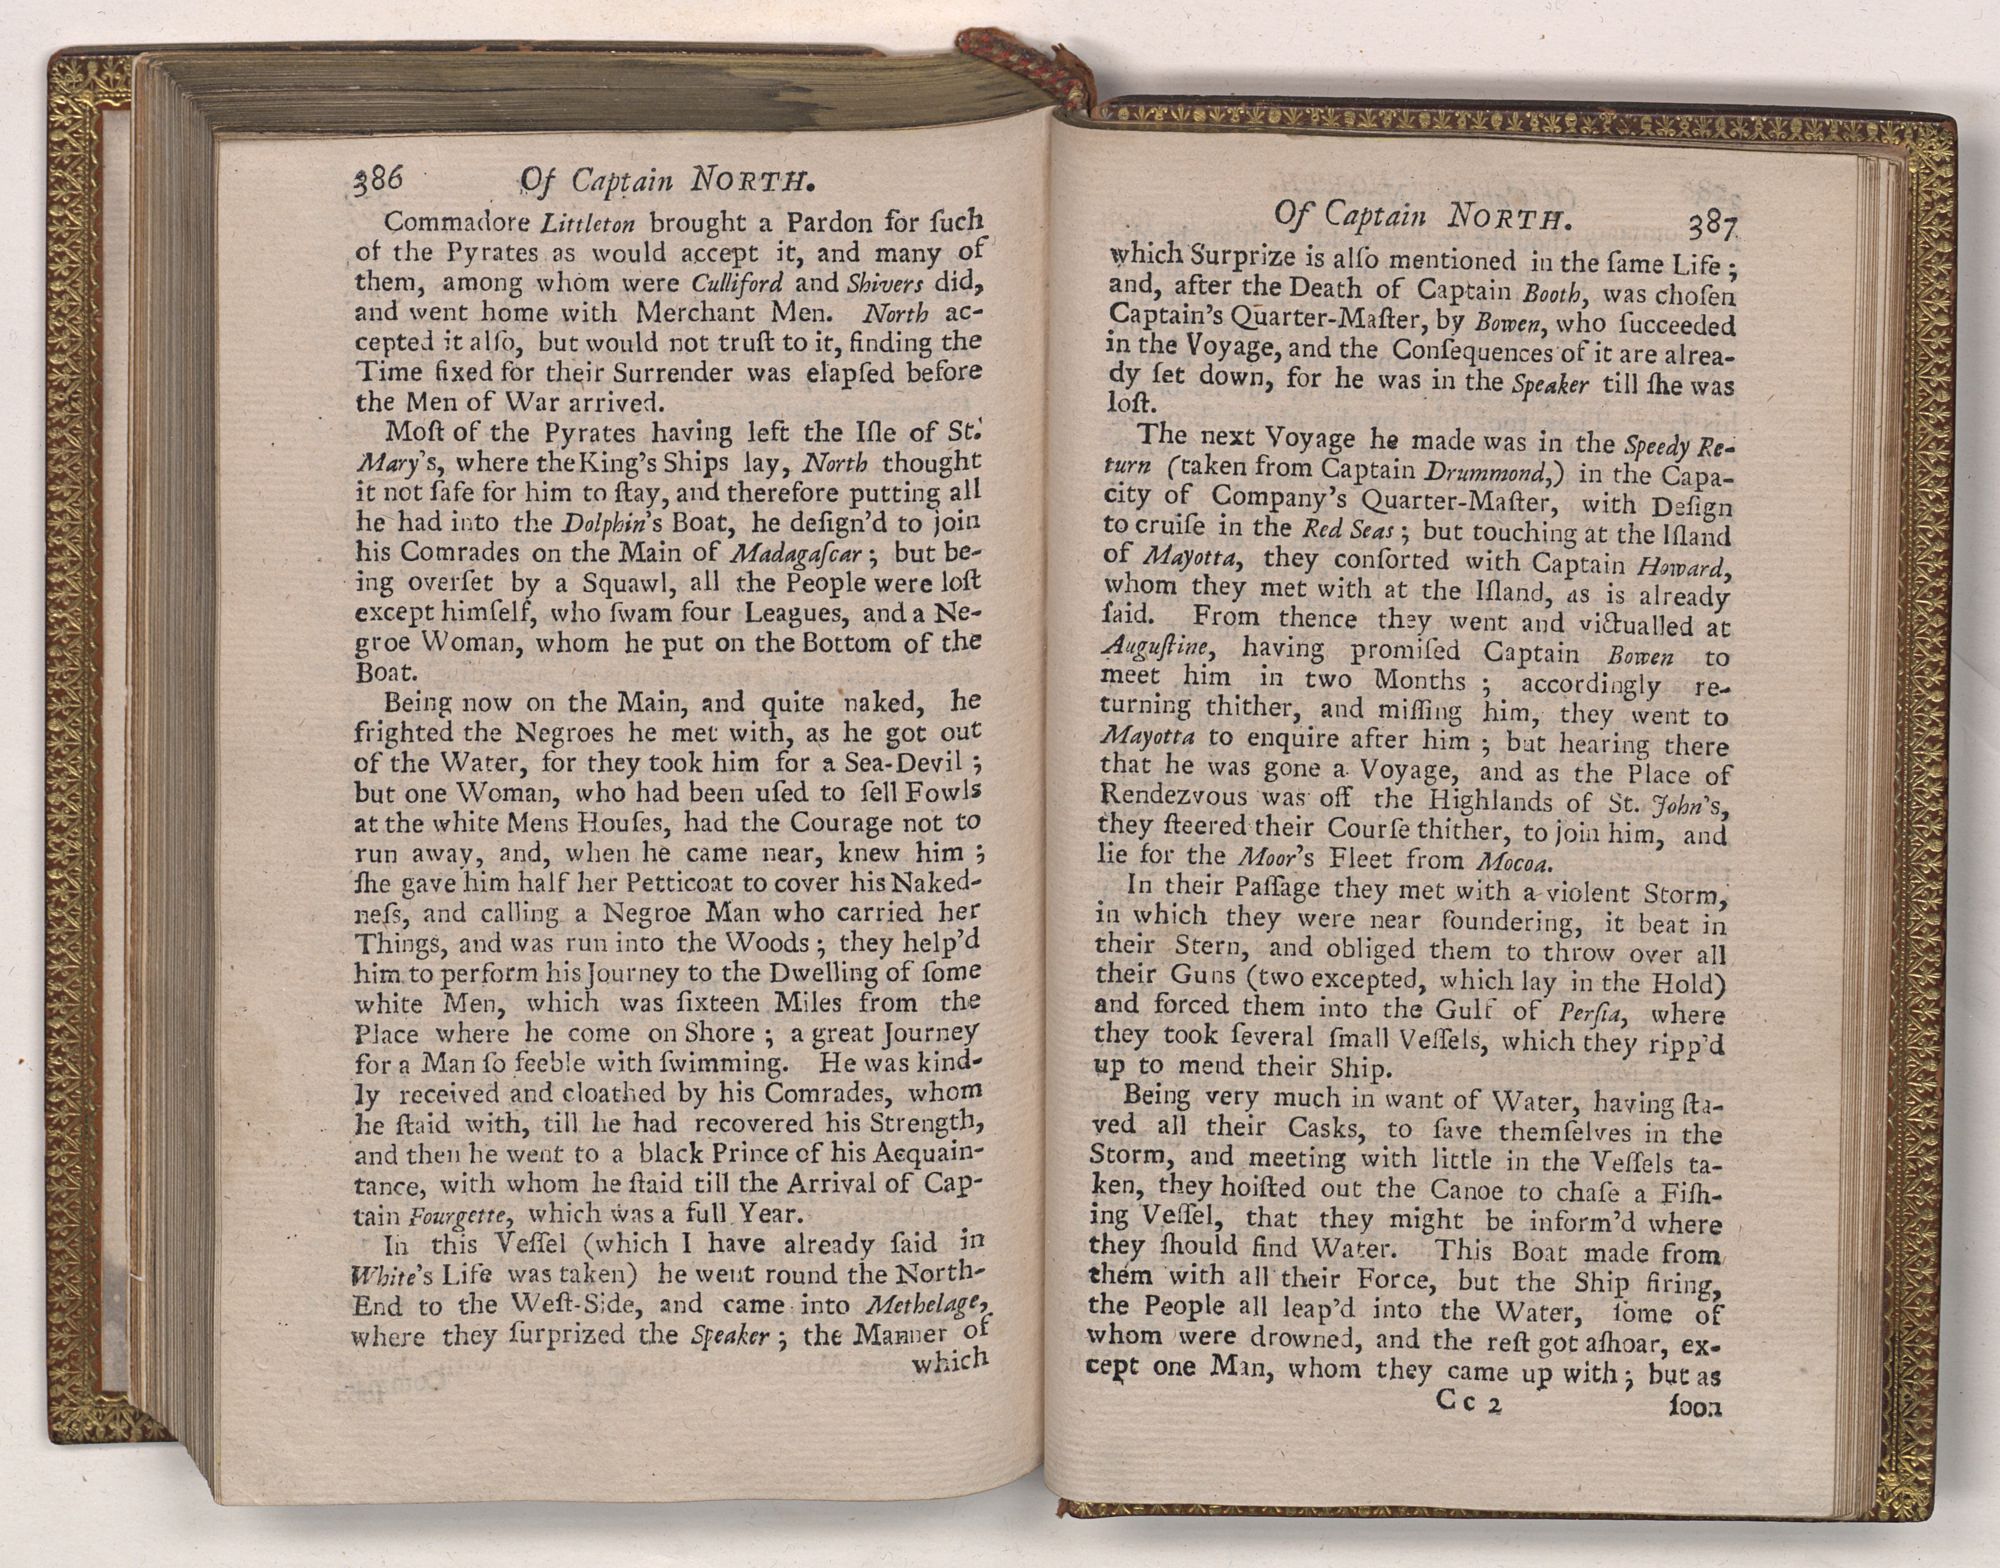 386 Of Captain NORTH.
Commadore Littleton brought a Pardon for ſuch
of the Pyrates as would accept it, and many of
them, among whom were Culliford and Shivers did,
and went home with Merchant Men. North ac-
cepted it alſo, but would not truſt to it, finding the
Time fixed for their Surrender was elapſed before
the Men of War arrived.
Moſt of the Pyrates having left the Iſle of St.
Mary's, where the King's Ships lay, North thought
it not ſafe for him to ſtay, and therefore putting all
he had into the Dolphin's Boat, he deſign'd to join
his Comrades on the Main of Madagaſcar; but be-
ing overſet by a Squawl, all the People were loſt
except himſelf, who ſwam four Leagues, and a Ne-
groe Woman, whom he put on the Bottom of the
Boat.
Being now on the Main, and quite naked, he
frighted the Negroes he met with, as he got out
of the Water, for they took him for a Sea-Devil;
but one Woman, who had been uſed to ſell Fowls
at the white Mens Houſes, had the Courage not to
run away, and, when he came near, knew him;
ſhe gave him half her Petticoat to cover his Naked-
neſs, and calling a Negroe Man who carried her
Things, and was run into the Woods; they help'd
him to perform his Journey to the Dwelling of ſome
white Men, which was ſixteen Miles from the
Place where he come on Shore; a great Journey
for a Man ſo feeble with ſwimming. He was kind-
ly received and cloathed by his Comrades, whom
he ſtaid with, till he had recovered his Strength,
and then he went to a black Prince of his Acquain-
tance, with whom he ſtaid till the Arrival of Cap-
tain Fourgette, which was a full Year.
In this Veſſel (which I have already ſaid in
White's Life was taken) he went round the North-
End to the Weſt-Side, and came into Methelage,
where they ſurprized the Speaker; the Manner of
which
Of Captain NORTH. 387
which Surprize is alſo mentioned in the ſame Life;
and, after the Death of Captain Booth, was choſen
Captain's Quarter-Maſter, by Bowen, who ſucceeded
in the Voyage, and the Conſequences of it are alrea-
dy ſet down, for he was in the Speaker till ſhe was
loſt.
The next Voyage he made was in the Speedy Re-
turn (taken from Captain Drummond,) in the Capa-
city of Company's Quarter-Maſter, with Deſign
to cruiſe in the Red Seas; but touching at the Iſland
of Mayotta, they conſorted with Captain Howard,
whom they met with at the Iſland, as is already
ſaid. From thence they went and victualled at
Auguſtine, having promiſed Captain Bowen to
meet him in two Months; accordingly re-
turning thither, and miſſing him, they went to
Mayotta to enquire after him; but hearing there
that he was gone a Voyage, and as the Place of
Rendezvous was off the Highlands of St. John's,
they ſteered their Courſe thither, to join him, and
lie for the Moor's Fleet from Mocoa.
In their Paſſage they met with a violent Storm,
in which they were near foundering, it beat in
their Stern, and obliged them to throw over all
their Guns (two excepted, which lay in the Hold)
and forced them into the Gulf of Perſia, where
they took ſeveral ſmall Veſſels, which they ripp'd
up to mend their Ship.
Being very much in want of Water, having ſta-
ved all their Casks, to ſave themſelves in the
Storm, and meeting with little in the Veſſels ta-
ken, they hoiſted out the Canoe to chaſe a Fiſh-
ing Veſſel, that they might be inform'd where
they ſhould find Water. This Boat made from
them with all their Force, but the Ship firing,
the People all leap'd into the Water, ſome of
whom were drowned, and the reſt got aſhoar, ex-
cept one Man, whom they came up with; but as
Cc 2 ſoon